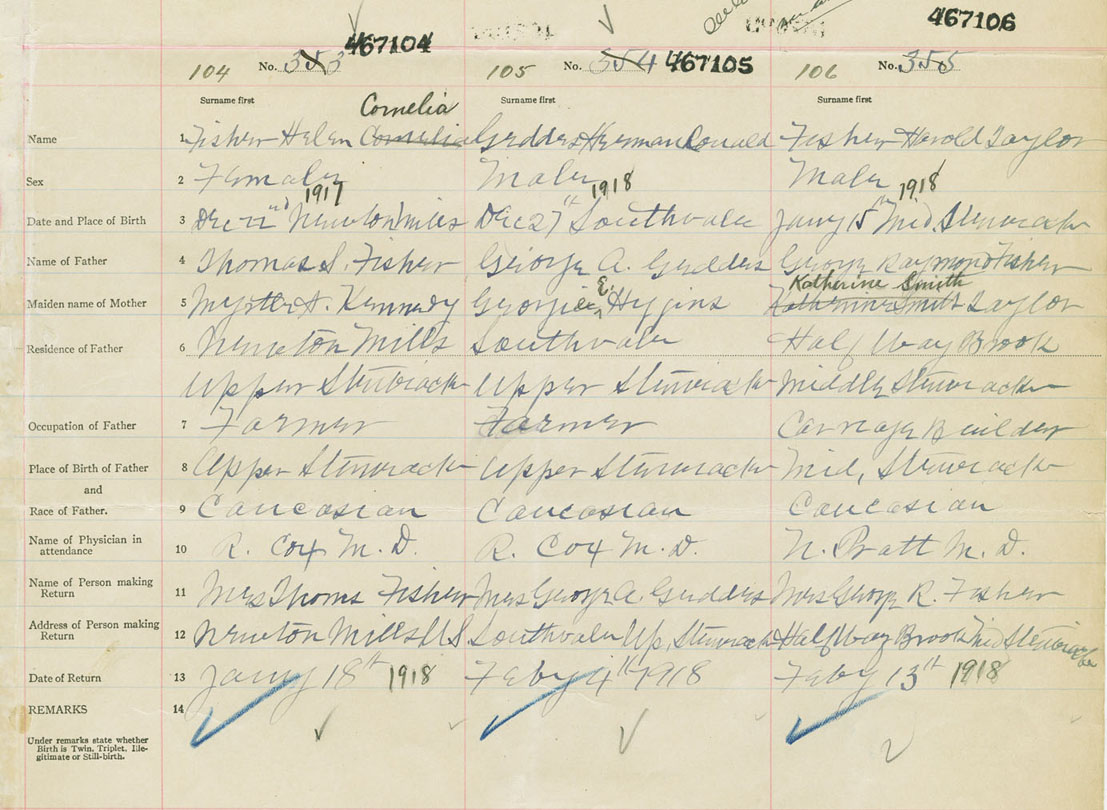 467104 467105 467106
104 No. 353 105 No. 354 106 No. 355
Surname first Surname first Surname first
Cornelia
Name 1 Fisher Helen Cornelia Geddes Herman Ronald Fisher Harold Taylor
Sex 2 Female Male Male
1917 1918 1918
Date and Place of Birth 3 Dec 22nd Newton Mills Dec 27th Southvale Jany 15th Mid. Stewiacke
Name of Father 4 Thomas S. Fisher George A. Geddes George Raymond Fisher
Katherine Smith
Maiden name of Mother 5 A. Kennedy Georgie E. Higgins Katherine Smith Taylor
Residence of Father 6 Newton Mills Southvale Half Way Brook
Upper Stewiacke Upper Stewiacke Middle Stewiacke
Occupation of Father 7 Farmer Farmer Carriage Builder
Place of Birth of Father 8 Upper Stewiacke Upper Stewiacke Mid, Stewiacke
and
Race of Father. 9 Caucasian Caucasian Caucasian
Name of Physician in
attendance 10 R. Cox M. D. R. Cox M. D. N. Pratt M. D.
Name of Person making
Return 11 Mrs Thoms Fisher Mrs George A. Geddes Mrs George R. Fisher
Address of Person making
Return 12 Newton Mills U S Southvale Up, Stewiacke Half Way Brook Mid Stewiacke
Date of Return 13 Jany 18th 1918 Feby 4th 1918 Feby 13th 1918
REMARKS 14
Under remarks state whether
Birth is Twin, Triplet, Ille-
gitimate or Still-birth.